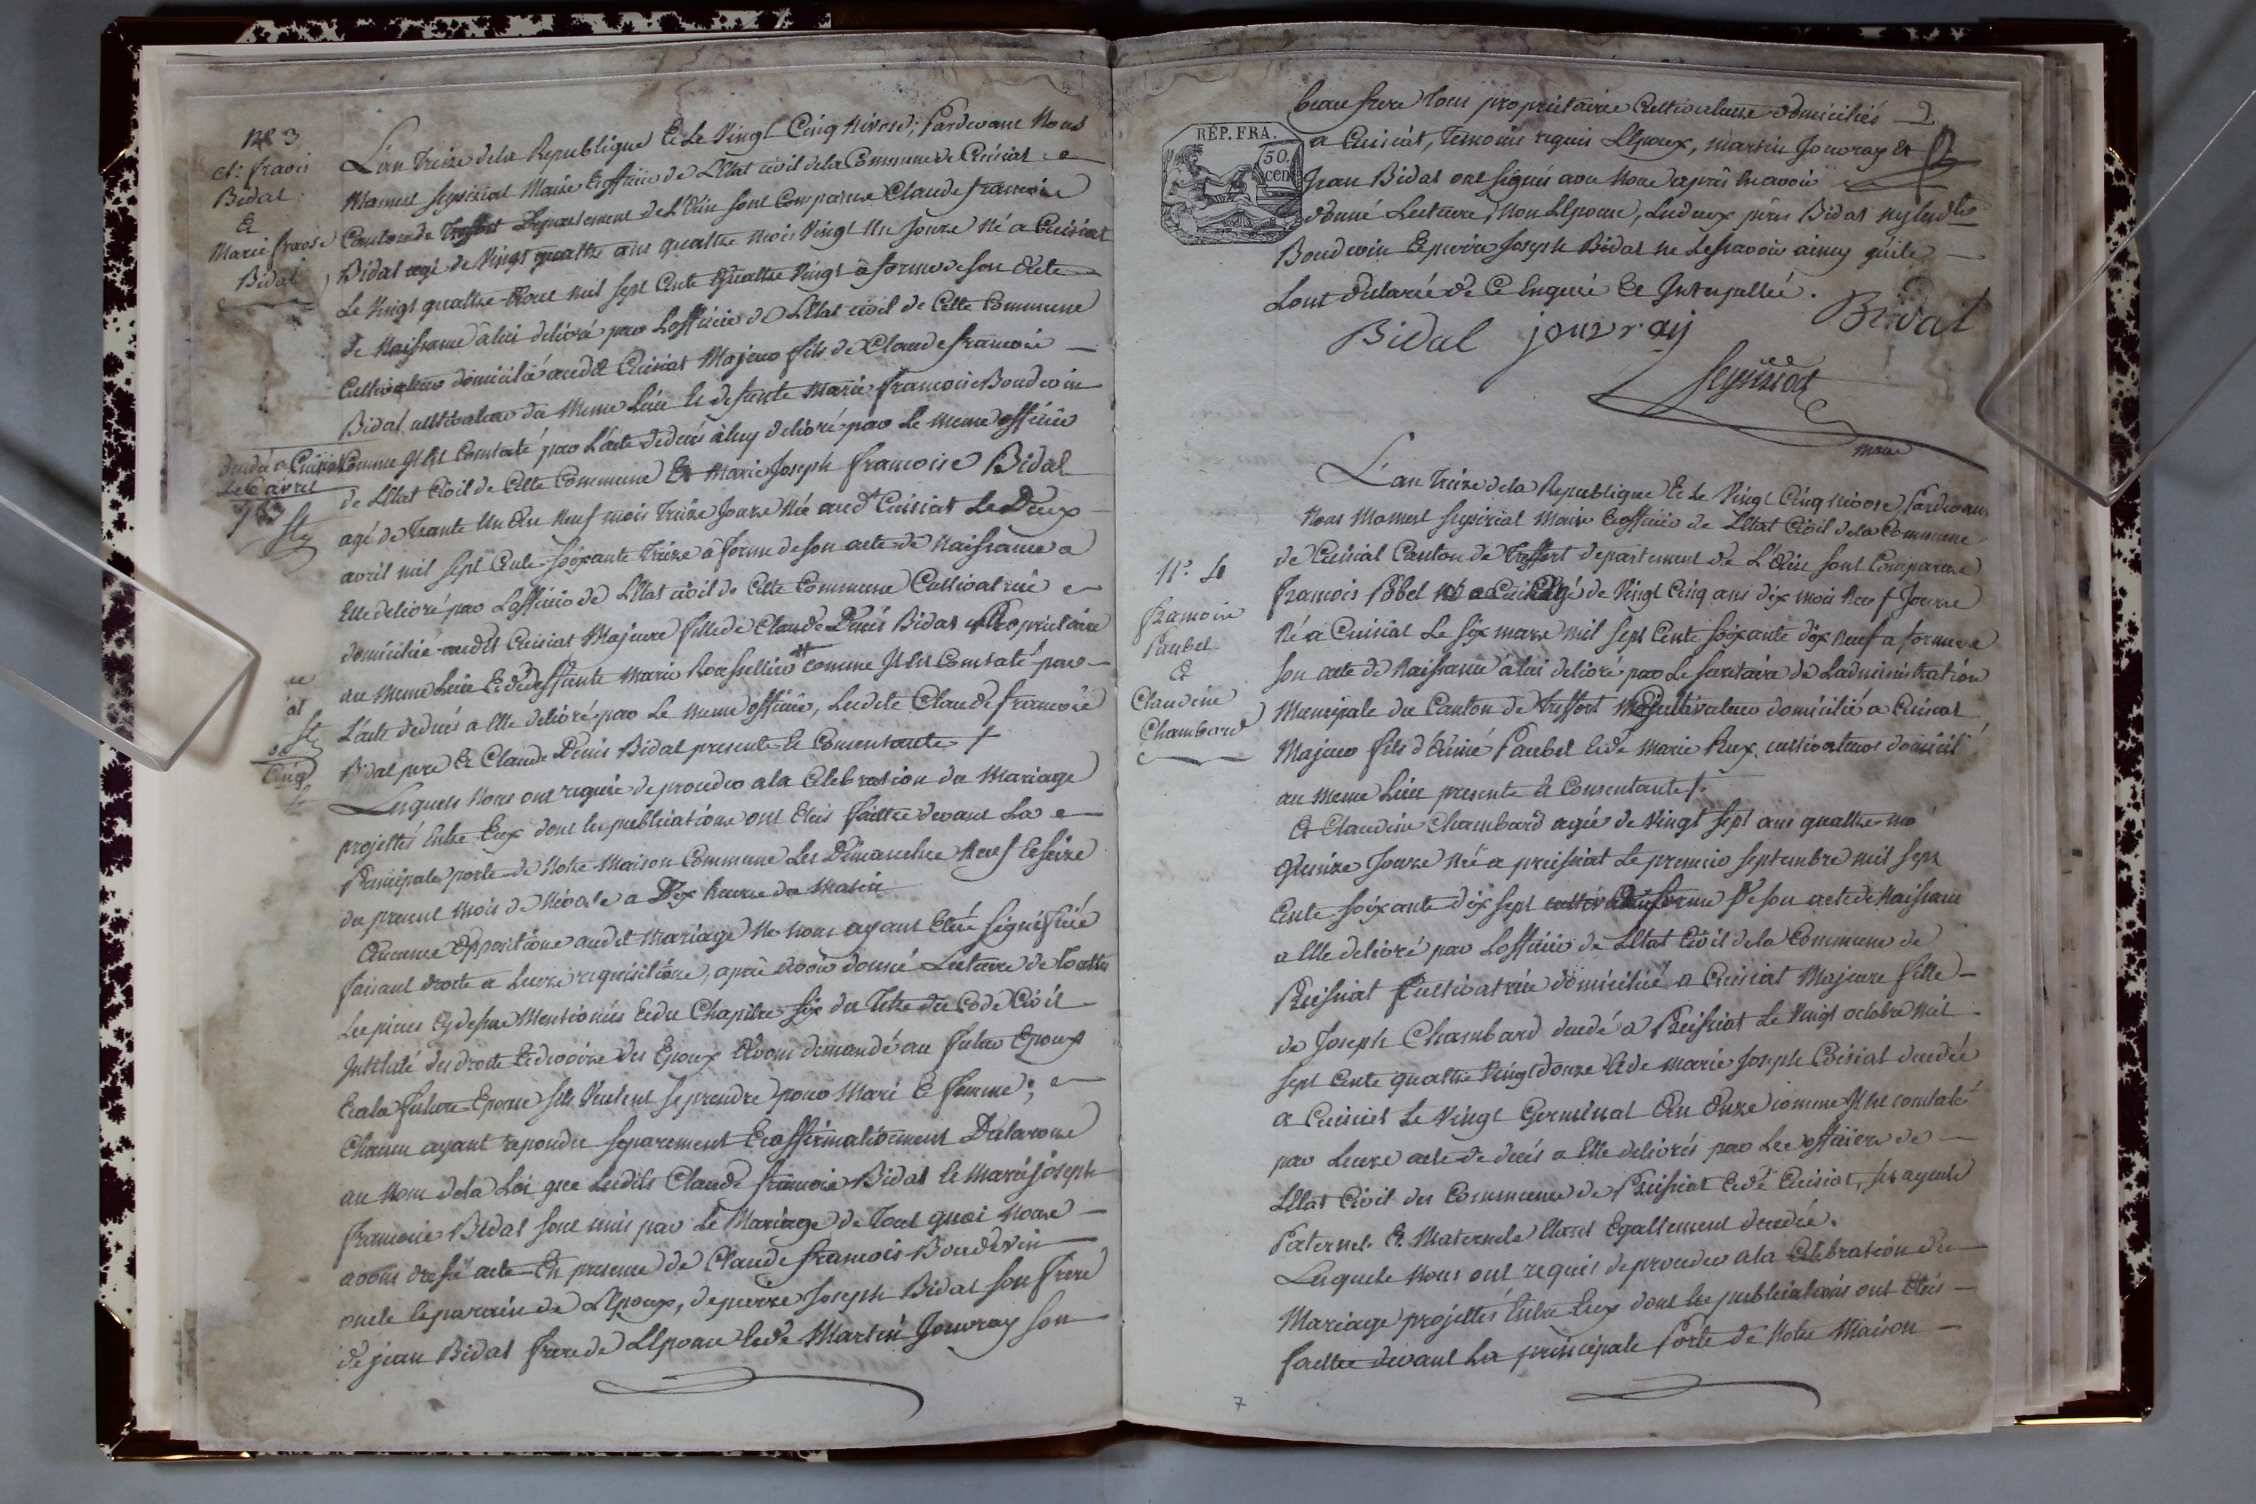 N° 3
Cl: franois
Bidal
&
Marie fraose
Bidal
L'an treize de la Republique & Le Vingt Cinq Nivose; Pardevant Nous
Mamert Seysiriat Maire & officier de L'Etat civil de la Commune de Cuisiat
Canton de Treffort Departement de L'Ain sont Comparus Claude francois
Bidal agé de Vingt quattre ans quattre mois Vingt Un Jours Né a Cuisiat
Le Vingt quattre Aout mil sept Cents Quattre Vingt à forme de son Acte
de Naissance à lui delivré par L'officier de L'Etat civil de Cette Commune
Cultivateur domicilié audit Cuisiat Majeur fils de Claude francois
Bidal cultivateur du Meme Lieu & defunte Marie francoise Boudevin
Comme Il Est Constaté par L'acte de decés à luy delivré par Le meme officier
de L'Etat Civil de Cette Commune & Marie Joseph francoise Bidal
agé de Trante Un An Neuf mois Treize Jours Née audt Cuisiat Le Deux
avril mil sept Cents Soixante Treize à forme de son acte de Naissance a
Elle delivré par L'officier de L'Etat civil de Cette Commune Cultivatrice
domicilié audit Cuisiat Majeure fille de Claude Denis Bidal Propriétaire
au meme Lieu & de deffunte Marie comme Il Est Constaté par
L'acte de decés a Elle delivré par Le meme officier, Ledits Claude francois
Bidal pere & Claude Denis Bidal presents & Consentants
Lesquels Nous ont requis de proceder a la Celebration du Mariage
projettés Entre Eux dont les publications ont Etés faittes devant La
Principale porte de Notre Maison Commune Les Dimanches Neuf & Seize
du present Mois de Nivose a Dix heures du Matin
Aucune Oppositions audit Mariage Ne nous ayant Eté Signifiée
faisant droite a Leurs requisitions, apres avoir donné Lecture de Touttes
Les pieces Cydessus Mentionées & du Chapitre Six du Titre du Code Civil
Intitulé des droits & devoirs des Epoux Avons demandé au futur Epoux
& a la future Epouse sils Veulent se prendre pour Mari & femme;
Chacun ayant repondu separement & affirmativement Declarons
au Nom de la Loi que Ledits Claude francois Bidal & Marie joseph
francoise Bidal sont unis par Le Mariage de Tout quoi Nous
avons dressé acte En presence de Claude francois Boudevin
oncle & parain de L'Epoux, de pierre Joseph Bidal son frere
de jean Bidal frere de L'Epouse & de Martin Jouvray son
decedé a Cuisiat
Le 6 avril
beau frere tous propriétaires Cultivateurs domiciliés
a Cuisiat, Temoins requis L'Epoux, martin Jouvray &
Jean Bidal ont signés avec Nous apres En avoir
donné Lecture, Non L'Epouse, Ledeux peres Bidal ny
Boudevin & pierre Joseph Bidal ne Lesachavoir ainsy quils
L'ont declarés de Ce Enquis & Interpellés.
RÉP. FRA.
50.
cen
Bidal jouvray Bidal
Seysiriat
maire
N° 4
francois
Paubel
&
Claudine
Chambard
L'an Treize de la Republique & Le Vingt Cinq Nivose, Pardevant
Nous Mamert Seysiriat Maire & officier de L'Etat Civil de la Commune
de Cuisiat Canton de Treffort departement de L'Ain sont Comparus
francois Pobel agé de Vingt Cinq ans dix mois Neuf Jours
Né a Cuisiat Le Six mars mil sept Cents Soixante dix Neuf a forme
son acte de Naissance a lui delivré par Le Secretaire de L'administration
Municipale du Canton de Treffort Cultivateur domicilié a Cuisiat
Majeur fils d'Aimé Paubel & de Marie Rux cultivateurs domicil
au meme Lieu presents & Consentants.
& Claudine Chambard agée de Vingt Sept ans quattre mo
Quinze Jours Née a preissiat Le premier septembre mil sept
Cents Soixante dix Sept a forme de son acte de Naissance
a Elle delivré par L'officier de L'Etat Civil de la Commune de
Preissiat Cultivatrice domiciliée a Cuisiat Majeure fille
de Joseph Chambard decedé a Preissiat Le Vingt octobre Mil
Sept Cents quattre Vingt douze & de marie Joseph Cuisiat decedée
a Cuisiat Le Vingt Germinal An Onze comme Il Est constaté
par Leurs acte de decés a Elle delivrés par Les officiers de
L'Etat Civil des Communes de Preissiat & de Cuisiat, ses ayeuls
Paternels & Maternels Etant Egallement decedés.
Lesquels Nous ont requis de proceder a la Celebration du
Mariage projettés Entre Eux dont les publications ont Etés
faittes devant La principale Porte de Notre Maison
7